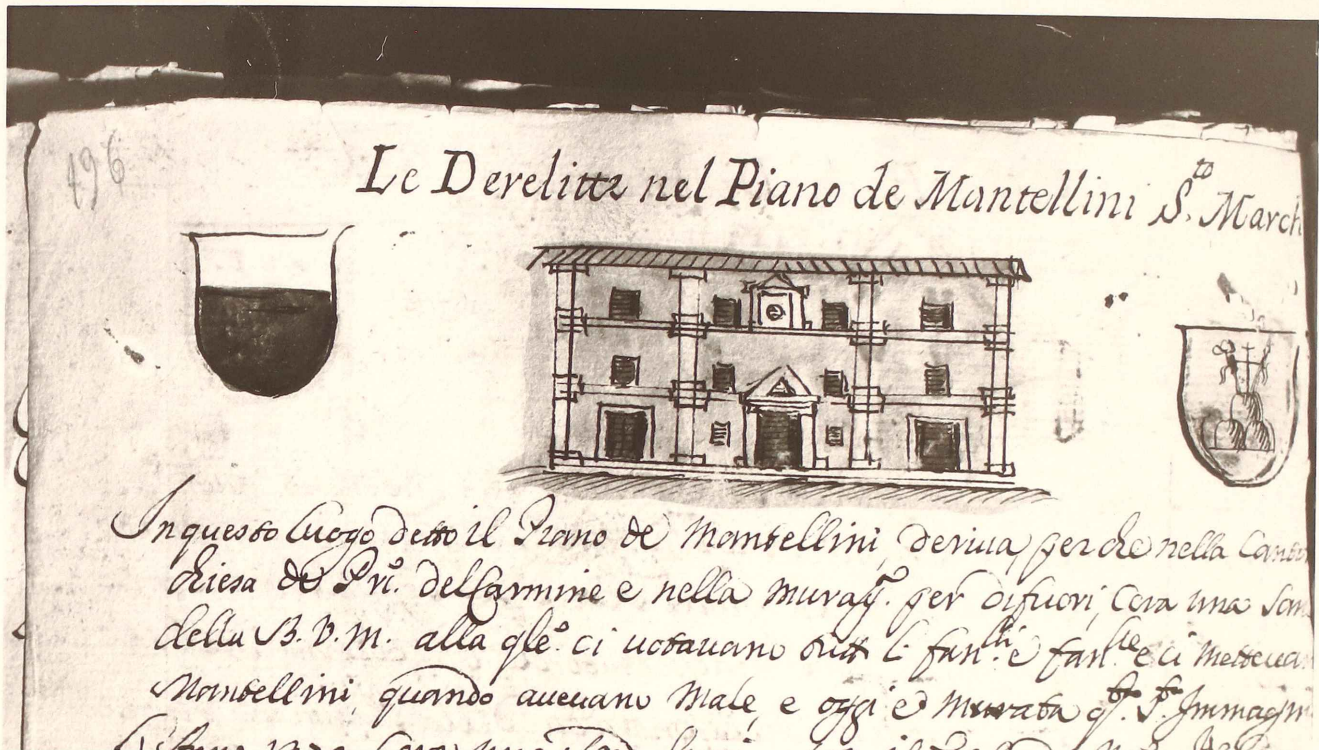 496
Le Derelitte nel Piano de Mantellini S.to March
In questo luogo detto il Piano de Mantellini, deriua, perche nella Canto
chiesa de Pri. del Carmine e nella murag. per difuori, cera una
della B. V. M. alla qle. ci uotauano tutt li fan.lli e fan.lle e ci metteua
Mantellini, quando aueuano male, e oggi è murata q. S. Immagin